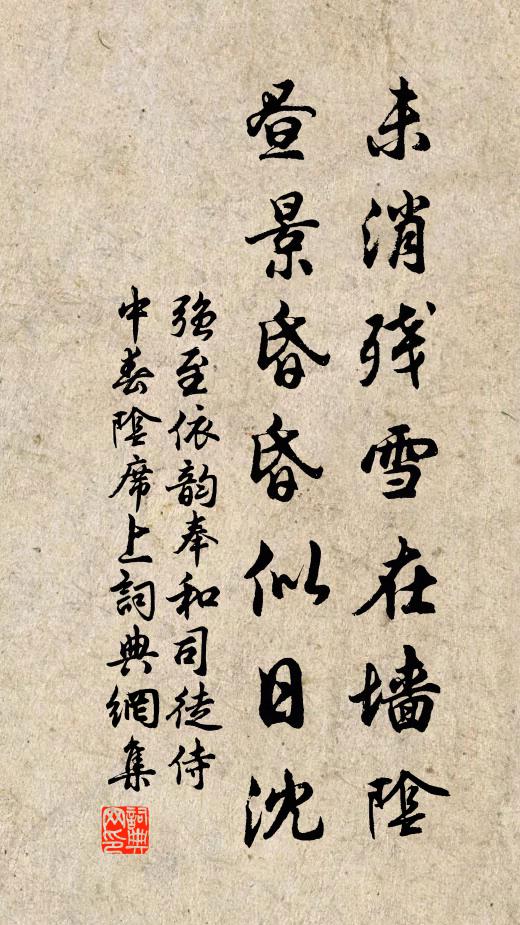 未消残雪在墙陰
昼景昏昏似日沈
強至依韵奉和司徒侍
中春陰席上詞典網集
詞典网印